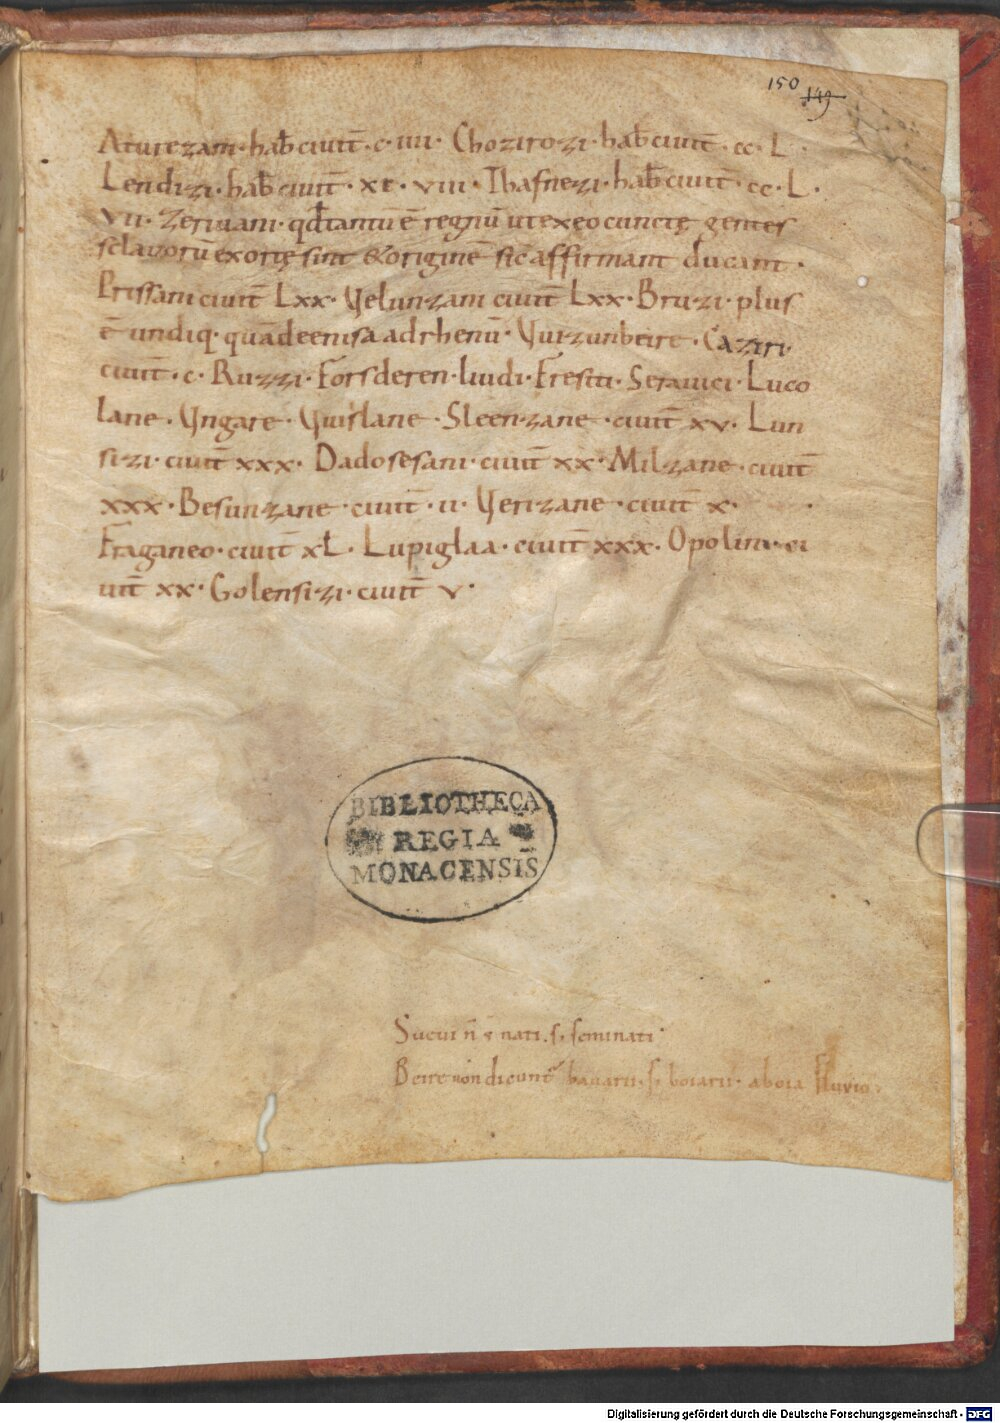 150 149
Aturezani · hab̄ ciuit̄ · c · iiii · Chozirozi · hab̄ ciuit̄ · cc · L ·
Lendizi · hab̄ ciuit̄ · xc · viii · Thafnezi · hab̄ ciuit̄ · cc · L ·
vii · Zeriuani · qd̄ tantū ē regnū ut ex eo cunctę gentes
sclauorū exortę sint & originē sic̄ affirmant ducant ·
Prissani ciuit̄ Lxx · Velunzani ciuit̄ Lxx · Bruzi · plus
ē undiq · quā de enisa ad rhenū · Vuizunbeire · Caziri ·
ciuit̄ · c · Ruzzi · Forsderen · liudi · Fresiti · Serauici · Luco
lane · Vngare · Vuislane · Sleenzane · ciuit̄ xv · Lun
sizi · ciuit̄ xxx · Dadosesani · ciuit̄ xx · Milzane · ciuit̄
xxx · Besunzane · ciuit̄ · ii · Verizane · ciuit̄ x ·
Fraganeo · ciuit̄ xL · Lupiglaa · ciuit̄ xxx · Opolini · ci
uit̄ xx · Golensizi · ciuit̄ v ·
BIBLIOTHECA
REGIA
MONACENSIS
Sueui n̄ s̄ nati · s; seminati ·
Beire non dicunt᷑ bauarii · s; boiarii · a boia fluuio ·
Digitalisierung gefördert durch die Deutsche Forschungsgemeinschaft - DFG